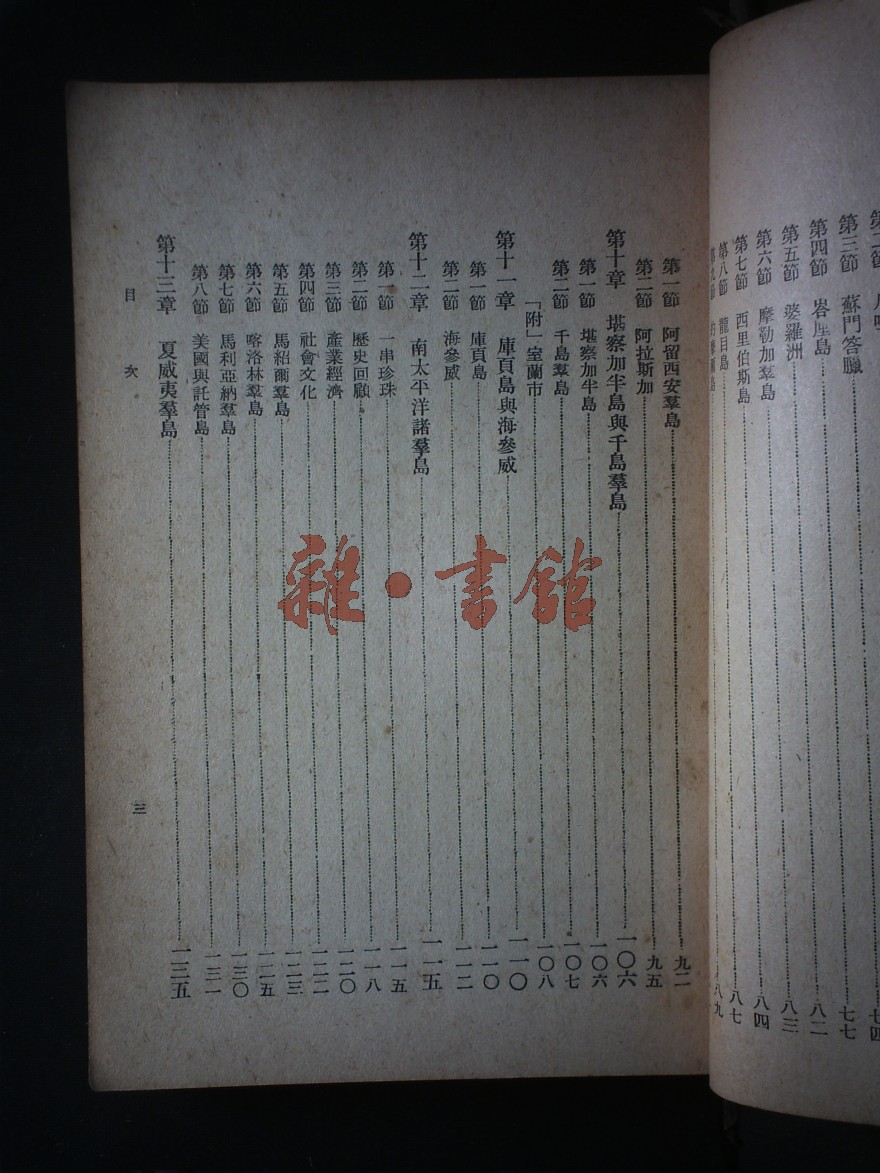 第三節 蘇門答臘 七七
第四節 峇厘島 八二
第五節 婆羅洲 八三
第六節 摩勒加羣島 八四
第七節 西里伯斯島 八七
第八節 龍目島 八九
第一節 阿留西安羣島 九二
第二節 阿拉斯加 九五
第十章 堪察加半島與千島羣島 一〇六
第一節 堪察加半島 一〇六
第二節 千島羣島 一〇七
「附」室蘭市 一〇八
第十一章 庫頁島與海參威 一一〇
第一節 庫頁島 一一〇
第二節 海參威 一一二
第十二章 南太平洋諸羣島 一一五
第一節 一串珍珠 一一五
第二節 歷史回顧 一一八
第三節 產業經濟 一二〇
第四節 社會文化 一二二
第五節 馬紹爾羣島 一二三
第六節 喀洛林羣島 一二五
第七節 馬利亞納羣島 一三〇
第八節 美國與託管島 一三一
第十三章 夏威夷羣島 一三五
目次 三
雜·書館